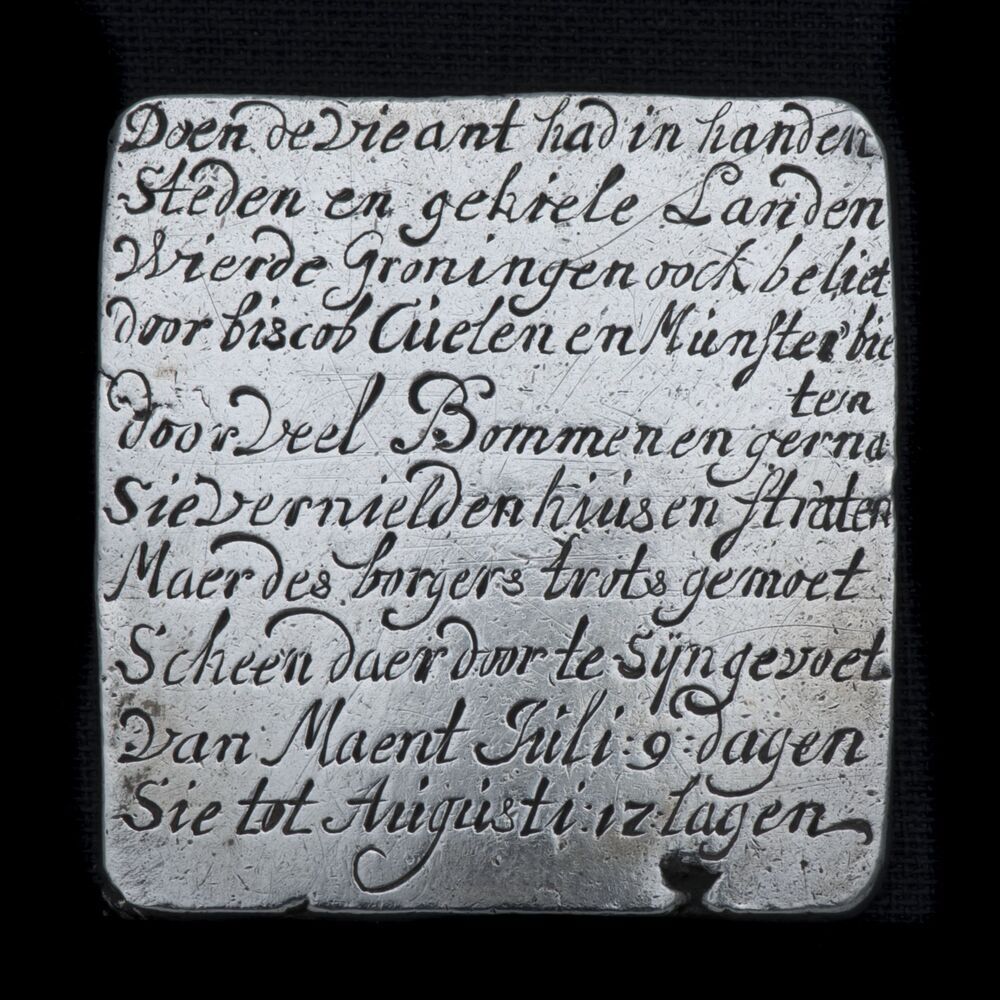 Doen de Vieant had in handen
Steden en gehiele Landen
Wierde Groningen oock beliet
door biscob Cüelen en Münster bie
ten
door veel Bommen en gerna
Sie vernielden hüüs en straten
Maer des borgers trots gemoet
Scheen daer door te Sÿn gevoet
van Maent Jüli: 9: dagen
Sie tot Aügüsti: 12: lagen